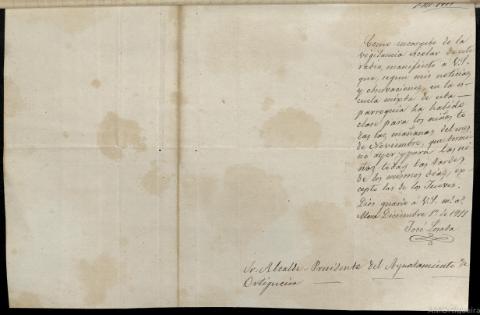 Como encargado de la
vigilancia escolar de esta
manifiesto a V.S.
que, según mis noticias
y observaciones, en la es-
cuela mixta de esta
parroquia ha habido
clase para los niños to-
das las mañanas del mes
de Noviembre, que termi-
nó ayer y para las ni-
ñas todas las tardes
de los mismos días, ex-
cepto las de los Jueves.
Dios guarde a V.S. m.s a.s
Diciembre 1º de 1911
José Losada
Sr. Alcalde Presidente del Ayuntamiento de
Ortigueira